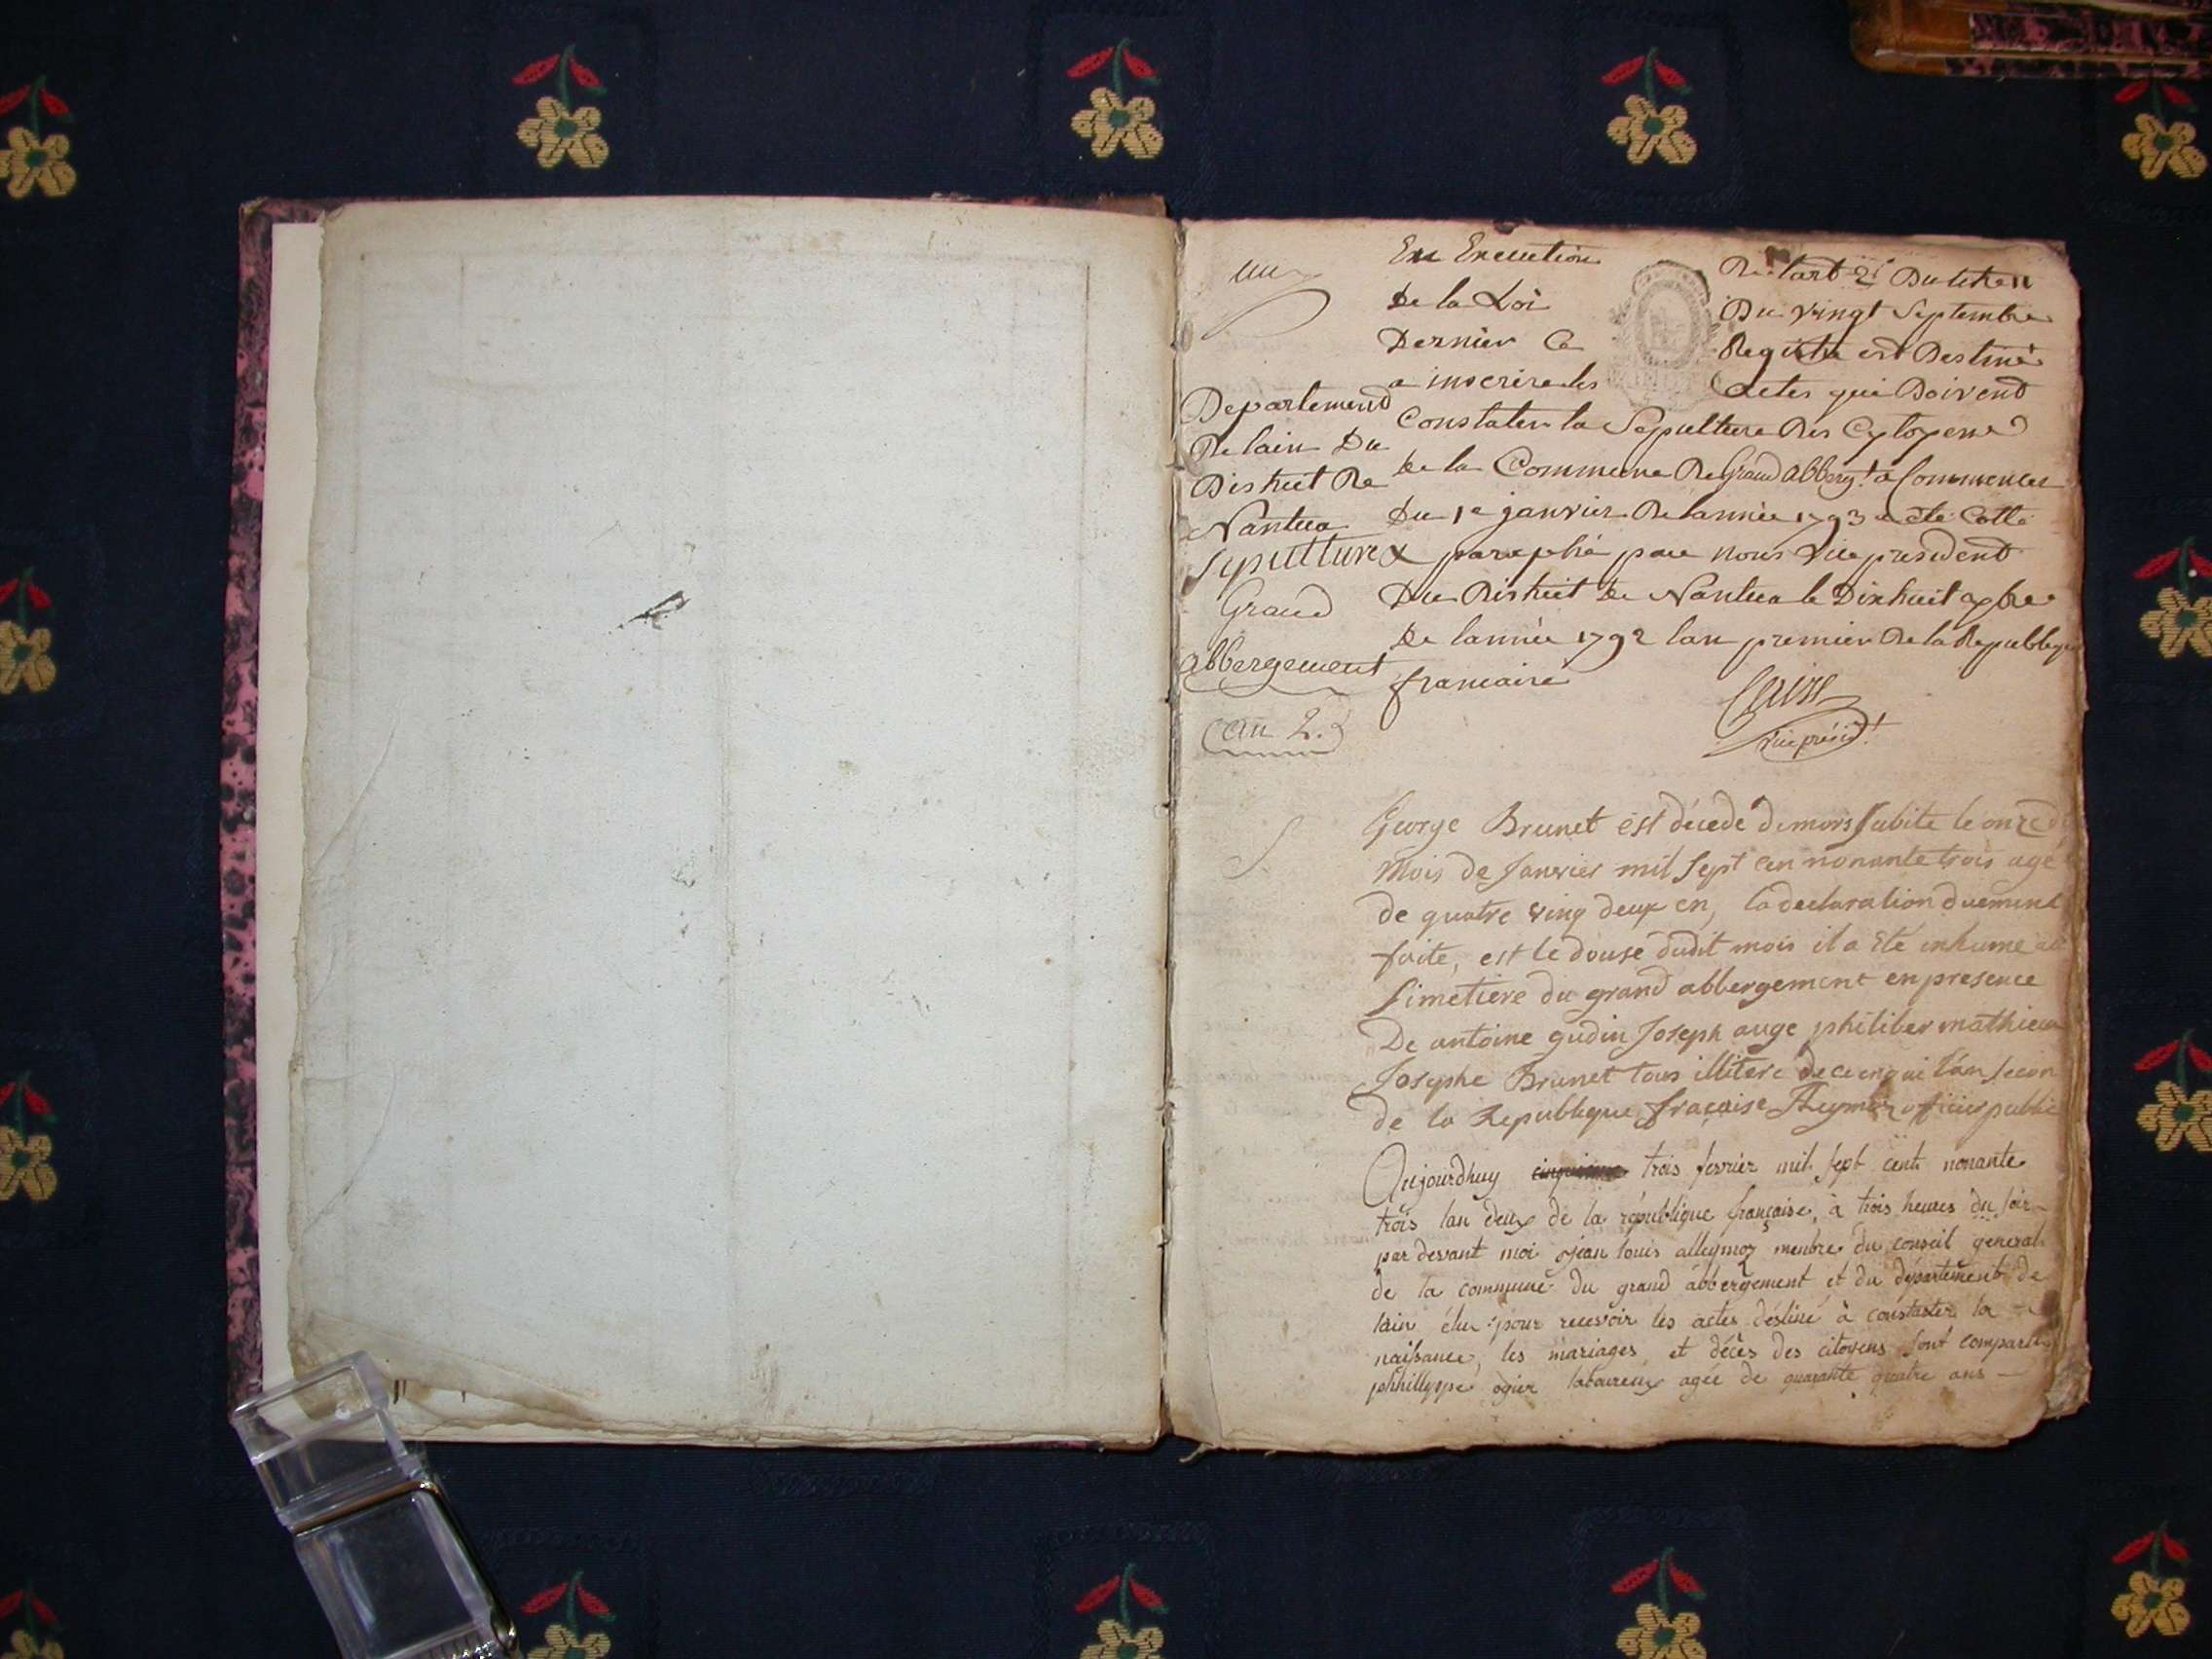 un
En Execution De lart 2e Du titre 11
De la Loi Du vingt Septembre
Dernier Ce Registre est Destiné
a inscrire les actes qui Doivent
Constater la Sepulture Des Cytoyens
de la Commune De Grand abbergt a Commencer
Du 1e janvier De lannée 1793 a été Cotté
& paraphé par nous Vice president
Du District de Nantua le Dixhuit xbre
De lannée 1792 lan premier De la Republique
francaise
vice présidt
Departement
De lain Du
District De
Nantua
Sepulture
Grand
abbergement
(an 2.)
George Brunet est décedé de mors subite le onze
Mois de Janvier mil sept cen nonante trois agé
de quatre ving deux en, la declaration duement
faite, est le douse dudit mois il a été inhume au
simetiere du grand abbergement en presence
De antoine gudin Joseph auge philiber mathieu
Josephe Brunet tous illitere de ce enquis l'an secon
de la Republique fraçaise officier public
Aujourdhuy trois fevrier mil sept cent nonante
trois lan deux de la république française, à trois heures du soir
par devant moi jean louis alleymoz menbre du conseil general
de la commune du grand abbergement et du département de
lain élu pour recevoir les actes destiné à constater la
naissance, les mariages et décès des citoyens sont comparu
phhillyppe ogier laboureux agée de quarante quatre ans